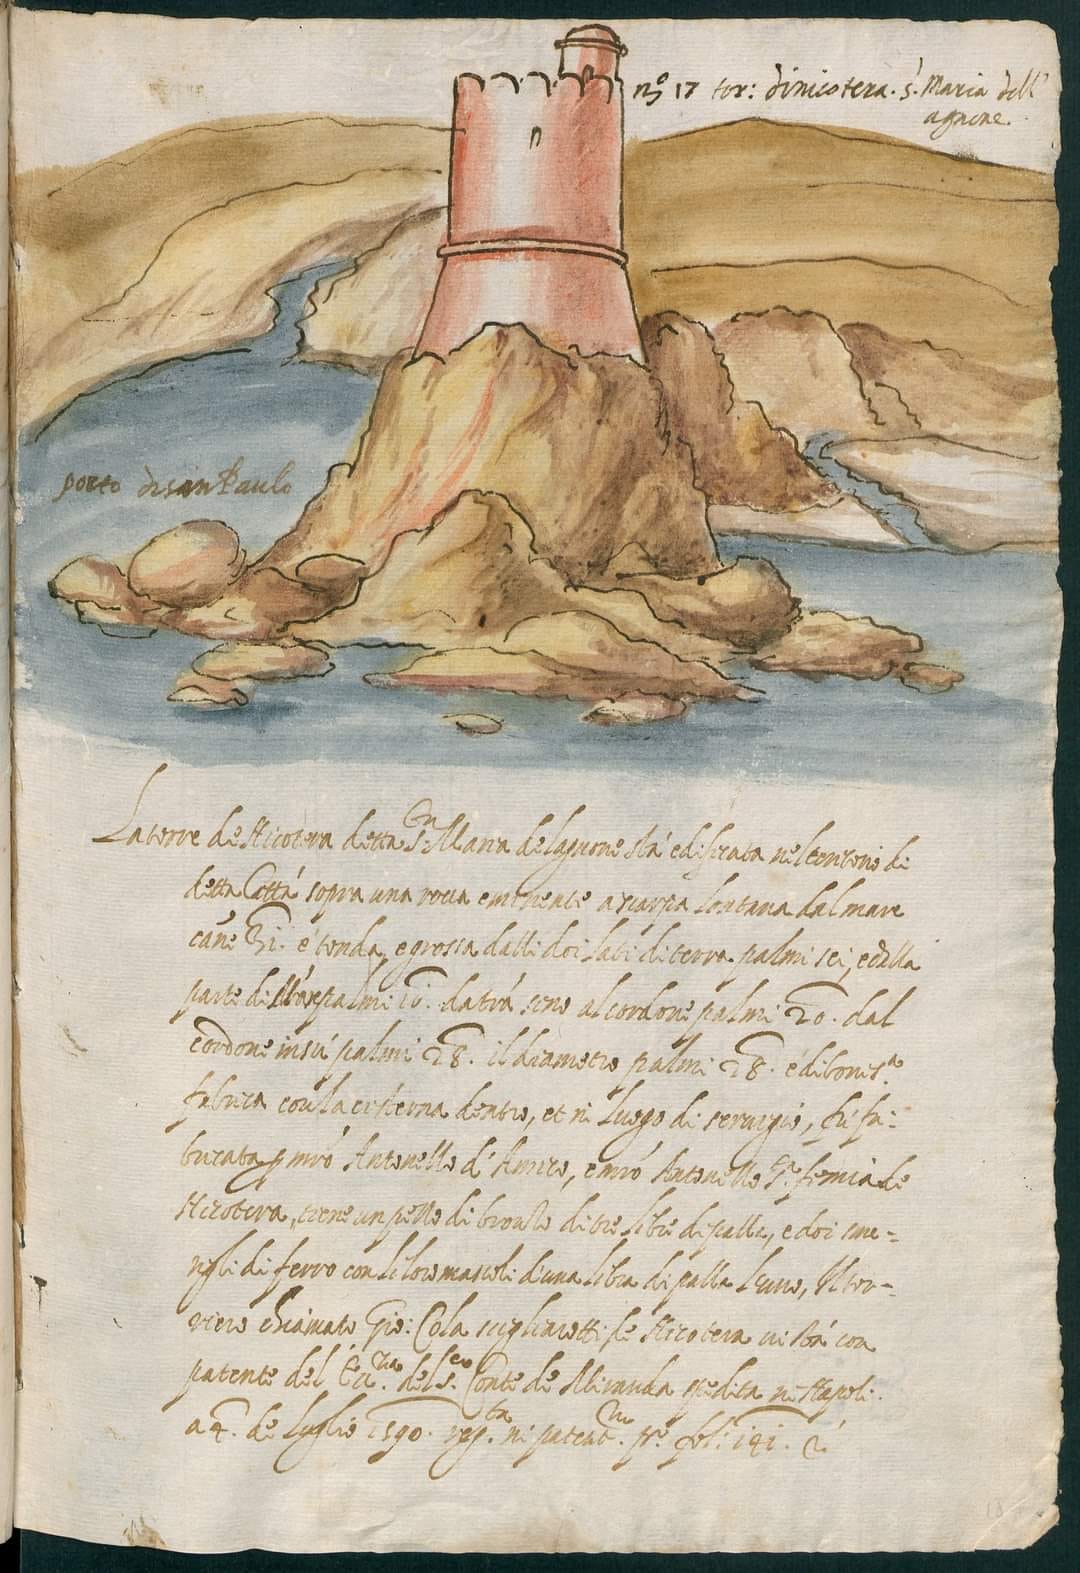 nº 17 tor: dinicotera. s. Maria dell'
agnone.
porto disan Paulo
La torre de Nicotera detta S.ta Maria delagnone stà edificata nel tenrorio di
detta Città sopra una rocca eminente a scarpa lontana dal mare
canne é tonda, e grossa dalli doi lati di terra palmi sei, e dalla
parte di Mare palmi d'altrà sino al cordone palmi 20. dal
cordone insù palmi 28. il diametro palmi 28. é di bonis.a
fabrica con la cisterna dentro, et in luogo di servizio, fù fa=
bricata p mrõ Antonello d'Amico, e mrõ Antonello S.ta femia de
Nicotera, tiene un pezzo di bronzo di tre libre di palla, e doi sme=
rigli di ferro con li loro mascoli d'una libra di palla l'uno, Il tor=
riero chiamato Gio: Cola de Nicotera vi stà con
patente del del S. Conte de Miranda spedita in Napoli.
a 4. de Luglio 1590. reg.ta in patent. fol: 141.